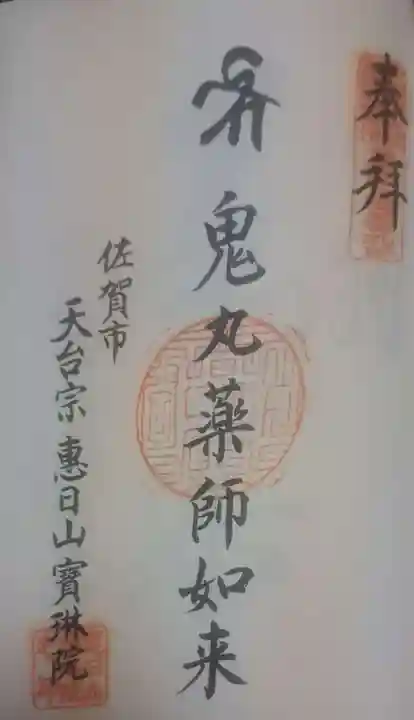 奉拝
鬼丸薬師如来
佐賀市
天台宗惠日山寶琳院